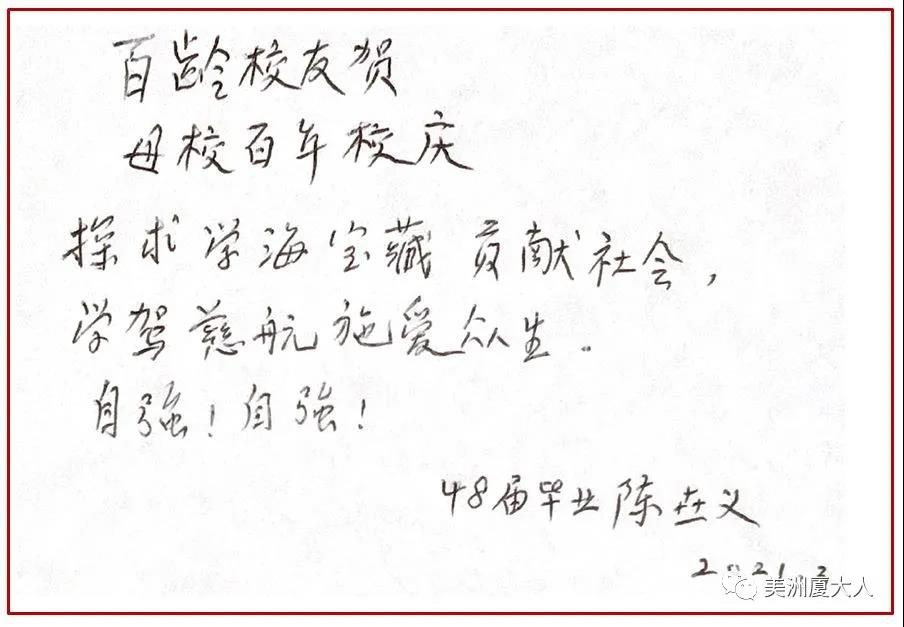 百龄校友贺
母校百年校庆
探求学海宝藏 贡献社会，
学驾慈航施爱众生．
自强！自强！
48届毕业 陈世义
2021.2
美洲厦大人